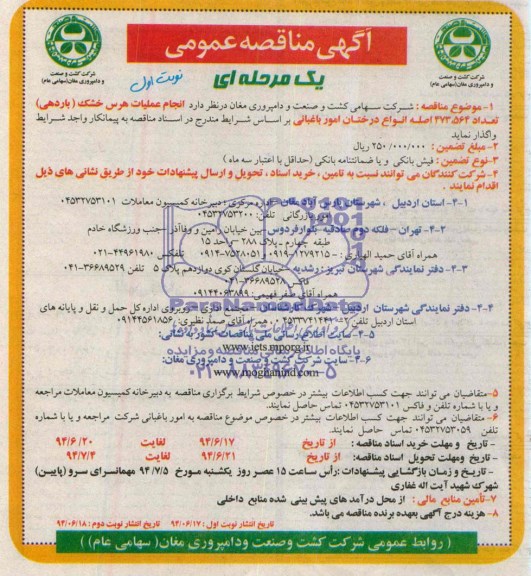 آگهی مناقصه عمومی
یک مرحله ای
نوبت اول
شرکت کشت و صنعت
و دامپروری مغان (سهامی عام)
شرکت کشت و صنعت
و دامپروری مغان (سهامی عام)
۱- موضوع مناقصه : شرکت سهامی کشت و صنعت و دامپروری مغان درنظر دارد انجام عملیات هرس خشک ( باردهی)
تعداد ۴۷۳،۵۶۴ اصله انواع درختان امور باغبانی بر اساس شرایط مندرج در اسناد مناقصه به پیمانکار واجد شرایط
واگذار نماید
۲- مبلغ تضمین : ۲۵۰/۰۰۰/۰۰۰ ریال
۳- نوع تضمین : فیش بانکی و یا ضمانتنامه بانکی (حداقل با اعتبار سه ماه )
۴- شرکت کنندگان می توانند نسبت به تامین ، خرید اسناد ، تحویل و ارسال پیشنهادات خود از طریق نشانی های ذیل
اقدام نمایند .
۴-۱- استان اردبیل ، شهرستان پارس آباد مغان – اداره مرکزی : دبیرخانه کمیسیون معاملات ۰۴۵۳۲۷۵۳۱۰۱
امور بازرگانی تلفن: ۰۴۵۳۲۷۵۳۲۰۰
۴-۲- تهران – فلکه دوم صادقیه بلوار فردوس – بین خیابان رامین و وفاآذر – جنب ورزشگاه خادم
طبقه چهارم – پلاک ۲۸۸ – واحد ۱۵
همراه آقای حمید الهیاری : ۰۹۱۹۰۱۲۷۹۲۱۵ – ۰۹۱۴۰۷۵۲۸۰۵۱ تلفکس ۰۲۱-۴۴۹۶۱۹۸۰
۴-۳- دفتر نمایندگی شهرستان تبریز : رشدیه – خیابان گلستان کوی دوازدهم پلاک ۵ تلفن ۰۴۱-۳۶۶۸۹۵۲۹
فاکس ۰۴۱-۳۶۶۸۹۵۲۸
همراه آقای صفر فهیمی: ۰۹۱۴۴۰۶۳۸۹۹
۴-۴- دفتر نمایندگی شهرستان اردبیل – شهرک کارشناسان – مجتمع اداری – روبروی اداره کل حمل و نقل و پایانه های
استان اردبیل تلفن همراه آقای صیاد نظری: ۰۹۱۴۴۵۶۱۸۵۶
۴-۵- سایت اطلاع رسانی ملی مناقصات کشور به نشانی:
www.iets.mporg.ir
۴-۶- سایت شرکت کشت و صنعت و دامپروری مغان:
www.moghanind.com
۵- متقاضیان می توانند جهت کسب اطلاعات بیشتر در خصوص شرایط برگزاری مناقصه به دبیرخانه کمیسیون معاملات مراجعه
و یا با شماره تلفن و فاکس ۰۴۵۳۲۷۵۳۱۰۱ تماس حاصل نمایند.
۶- متقاضیان می توانند جهت کسب اطلاعات بیشتر در خصوص موضوع مناقصه به امور باغبانی شرکت مراجعه و یا با شماره
تلفن ۰۴۵۳۲۷۵۳۰۵۹ تماس حاصل نمایند.
- تاریخ و مهلت خرید اسناد مناقصه : از تاریخ ۹۴/۶/۱۷ لغایت ۹۴/۶/۲۰
- تاریخ ومهلت تحویل اسناد مناقصه: از تاریخ ۹۴/۶/۲۱ لغایت ۹۴/۷/۴
- تاریخ و زمان بازگشایی پیشنهادات :رأس ساعت ۱۵ عصر روز یکشنبه مورخ ۹۴/۷/۵ مهمانسرای سرو (پایین)
شهرک شهید آیت اله غفاری
۷- تأمین منابع مالی : از محل درآمد های پیش بینی شده منابع داخلی
۸- هزینه درج آگهی بعهده برنده مناقصه می باشد.
تاریخ انتشار نوبت اول : ۹۴/۰۶/۱۷ تاریخ انتشار نوبت دوم : ۹۴/۰۶/۱۸
( روابط عمومی شرکت کشت وصنعت ودامپروری مغان( سهامی عام))
ParsNamadData
پایگاه اطلاع رسانی مناقصه و مزایده